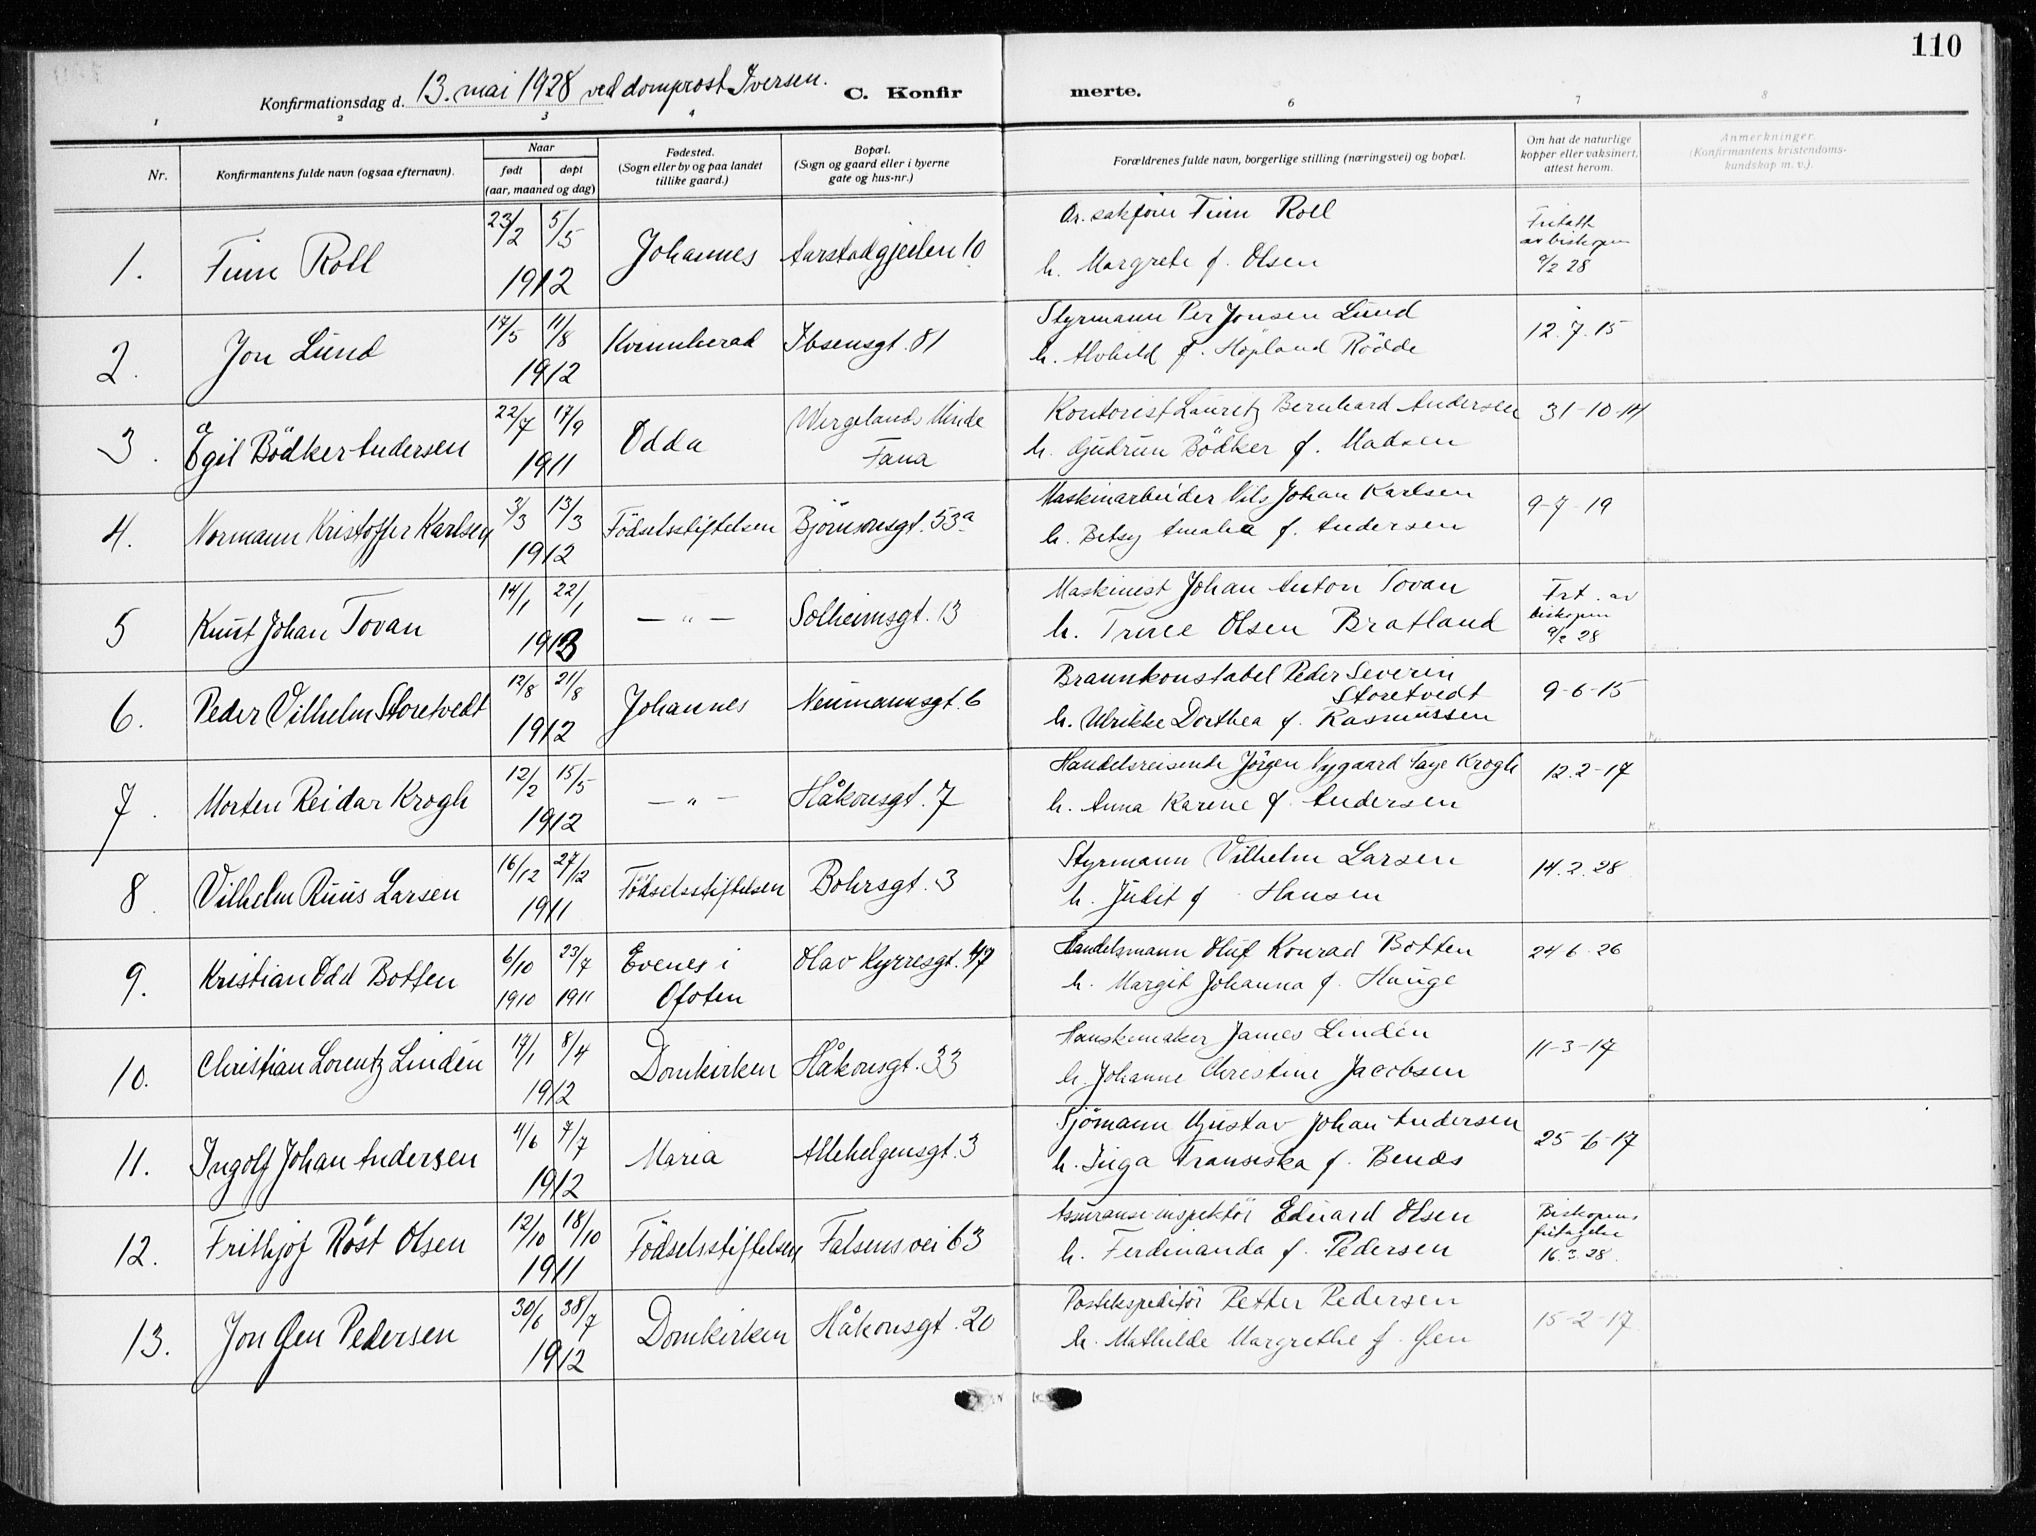 110
Konfirmationsdag d. 13. mai 1928 ved domprost Iversen. C. Konfir merte.
1 2 3 4 6 7 8
Nr.
Konfirmantens fulde navn (ogsaa efternavn).
Naar
født døpt
(aar, maaned og dag)
Fødested.
(Sogn eller by og paa landet
tillike gaard.)
Bopæl.
(Sogn og gaard eller i byerne
gate og hus-nr.)
Forældrenes fulde navn, borgerlige stilling (næringsvei) og bopæl.
Om hat de naturlige
kopper eller vaksinert,
attest herom.
Anmerkninger.
(Konfirmantens kristendoms-
kundskap m. v.).
1. Finn Roll 23/2 5/5 1912 Johannes Aarstadgjeilen 10
Or. sakfører Finn Roll
h. Margrete f. Olsen
Fritatt
av biskopen
9/2 28
2. Jon Lund 17/5 11/8 1912 Kvinnherad Ibsensgt. 81
Styrmann Per Jonsen Lund
h. Alvhild f. Höpland Rödde
12.7.15
3. Egil Bödker Andersen 22/7 17/9 1911 Odda Wergelands Minde
Fana
Kontorist Lauritz Bernhard Andersen
h. Gudrun Bödker f. Madsen
31-10-14
4. Normann Kristoffer Karlsen 3/3 13/3 1912 Födselsstiftelsen Björnsonsgt. 53a
Maskinarbeider Nils Johan Karlsen
h. Betsy Amalia f. Andersen
9-7-19
5 Knut Johan Tovan 14/1 22/1 1913 — " — Solheimsgt. 13
Maskinist Johan Anton Tovan
h. Trine Olsen Bratland
Frt. av
biskopen
9/2 28
6. Peder Vilhelm Storetvedt 12/8 21/8 1912 Johannes Neumannsgt. 6
Brannkonstabel Peder Severin
Storetvedt
h. Ulrikke Dorthea f. Rasmussen
9-6-15
7. Morten Reidar Krogh 12/2 15/5 1912 — " — Håkonsgt. 7
Handelsreisende Jörgen Nygaard Taye Krogh
h. Anna Karine f. Andersen
12.2-17
8. Vilhelm Ruus Larsen 16/12 27/12 1911 Födselsstiftelsen Bohrsgt. 3
Styrmann Vilhelm Larsen
h. Judit f. Hansen
14.2.28
9. Kristian Odd Botten 6/10 1910 23/7 1911 Evenes i
Ofoten
Olav Kyrresgt. 47
Handelsmann Oluf Konrad Botten
h. Margit Johanna f. Hauge
24.6.26
10. Christian Lorentz Lindén 17/1 8/4 1912 Domkirken Håkonsgt. 33
Hanskemaker James Lindén
h. Johanne Christine Jacobsen
11-3-17
11. Ingolf Johan Andersen 4/6 7/7 1912 Maria Allehelgensgt. 3
Sjömann Gustav Johan Andersen
h. Inga Fransiska f. Bends
25-6-17
12. Frithjof Röst Olsen 12/10 18/10 1911 Födselsstiftelsen Falsens vei 63
Assuranseinspektör Edvard Olsen
h. Ferdinanda f. Pedersen
Biskopens
fritagelse
16.3.28.
13. Jon Øen Pedersen 30/6 38/7 1912 Domkirken Håkonsgt. 20
Postekspeditör Petter Pedersen
h. Mathilde Margrethe f. Øen
15-2-17